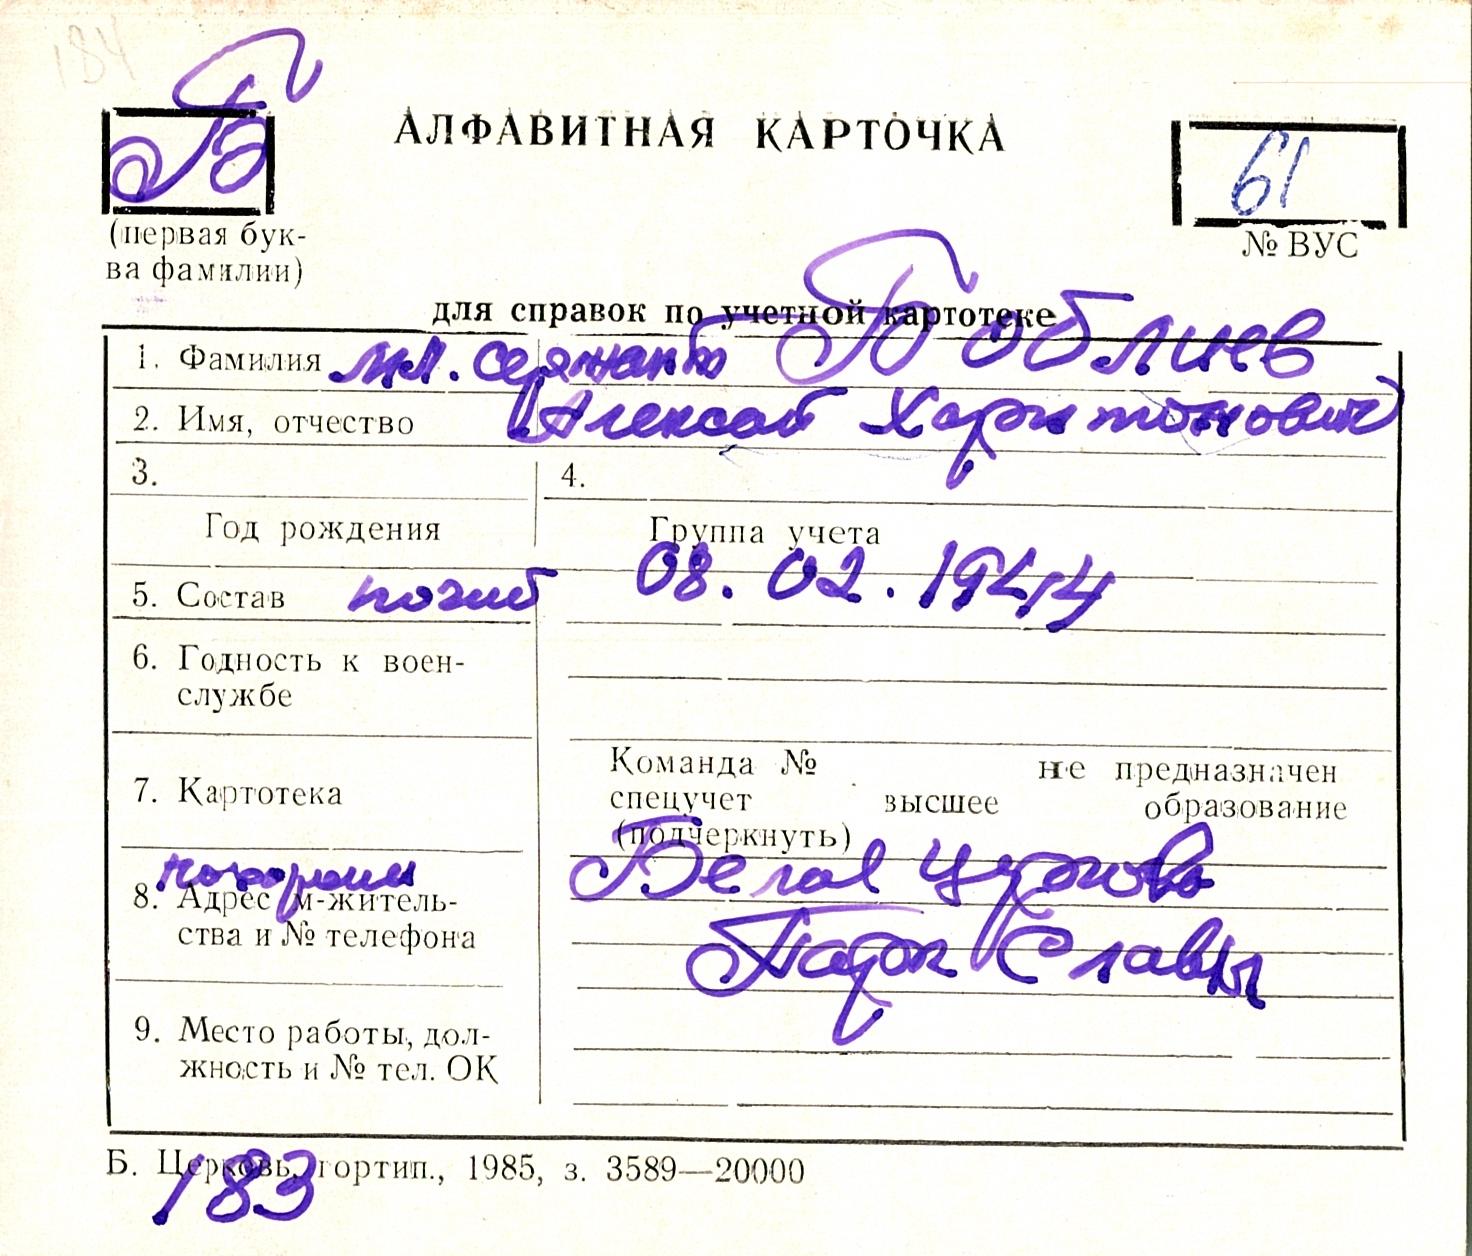 184
Б
АЛФАВИТНАЯ КАРТОЧКА
61
(первая бук-
ва фамилии)
№ ВУС
для справок по учетной картотеке
1. Фамилия мл. сержант Боблиев
2. Имя, отчество Алексей Харитонович
3.
4.
Год рождения
Группа учета
5. Состав погиб 08.02.1944
6. Годность к воен-
службе
Команда № не предназначен
7. Картотека
спецучет высшее образование
(подчеркнуть)
похоронен Белая Церковь
8. Адрес м-житель-
ства и № телефона
Парк Славы
9. Место работы, дол-
жность и № тел. ОК
Б. Церковь, гортип., 1985, з. 3589—20000
183